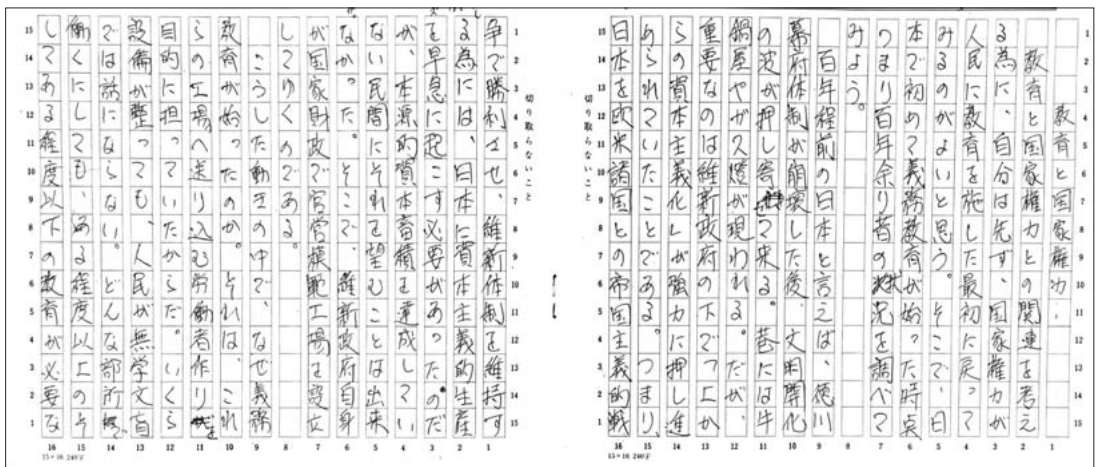 教育と国家権力.
教育と国家権力との関連を考え
る為に、自分は先ず、国家権力が
人民に教育を施した最初に戻って
みるのがよいと思う。そこで、日
本で初めて義務教育が始った時点
つまり百年余り昔の状況を調べて
みよう。
百年程前の日本と言えば、徳川
幕府体制が崩壊した後、文明開化
の波が押し寄せて来る。巷には牛
鍋屋やガス燈が現われる。だが、
重要なのは維新政府の下で「上か
らの資本主義化」が強力に押し進
められていたことである。つまり、
日本を欧米諸国との帝国主義的戦
15×16 240字
切り取らないこと
争で勝利させ、維新体制を維持す
る為には、日本に資本主義的生産
を早急に起こす必要があった。のだ
が、本源的資本畜積を達成してい
ない民間にそれを望むことは出来
なかった。そこで、維新政府自身
が国家財政で官営模範工場を設立
してゆくのである。
こうした動きの中で、なぜ義務
教育が始ったのか。それは、これ
らの工場へ送り込む労働者作りを
目的に担っていたからだ。いくら
設備が整っても、人民が無学文盲
では話にならない。どんな部所で
働くにしても、ある程度以上のそ
してある程度以下の教育が必要な
15×16 240字
切り取らないこと